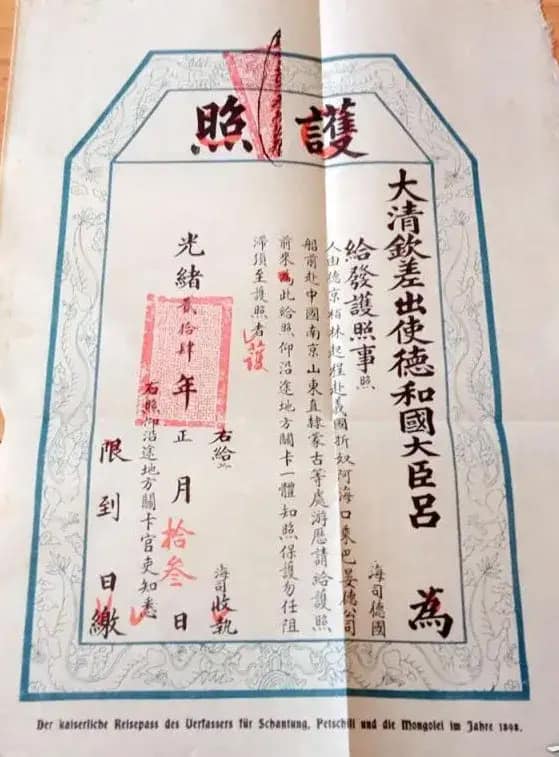 護照
大清欽差出使德和國大臣呂 為
給發護照事照 海司德國
人由德京栢林起程赴義國折奴阿海口乘巴晏德公司
船前赴中國南京山東直隸蒙古等處游歷請給護照
前來為此給照仰沿途地方關卡一體知照保護勿任阻
滯須至護照者 護
右給 海司收執
光緒貳拾肆年正月拾叁日
右照仰沿途地方關卡官吏知悉
限到日繳
Der kaiserliche Reisepass des Verfassers für Schantung, Petschili und die Mongolei im Jahre 1898.